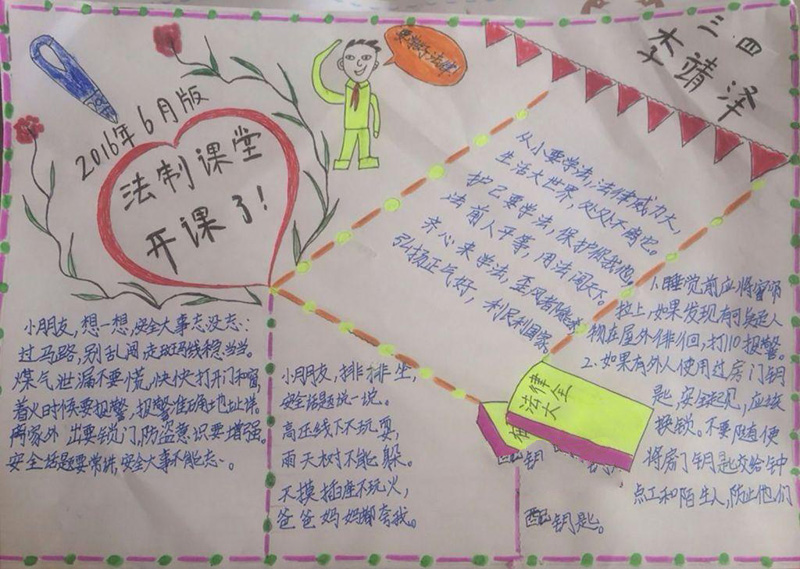 三.四
李靖泽
2016年6月版
法制课堂
开课了!
从小要学法,法律威力大,
生活大世界,处处不离它。
护己要学法,保护你我他,
法前人平等,用法闯天下。
齐心来学法,歪风者
弘扬正气好,利民利国家。
小朋友,想一想,安全大事忘没忘:
过马路,别乱闯,走斑马线稳当当。
煤气泄漏不要慌,快快打开门和窗,
着火时候要报警,报警准确地址详。
离家外出要锁门,防盗意识要增强。
安全话题要常讲,安全大事不能忘。
小朋友,排排坐,
安全话题说一说。
高压线下不玩耍,
雨天树下不能躲。
不摸插座不玩火,
爸爸妈妈都夸我。
1.睡觉前应将窗帘
拉上,如果发现有可疑人
物在屋外徘徊,打110报警。
2.如果有外人使用过房门钥
匙,安全起见,应该
换锁。不要随便
将房门钥匙交给钟
点工和陌生人,防止他们
配钥匙。
律全
法大